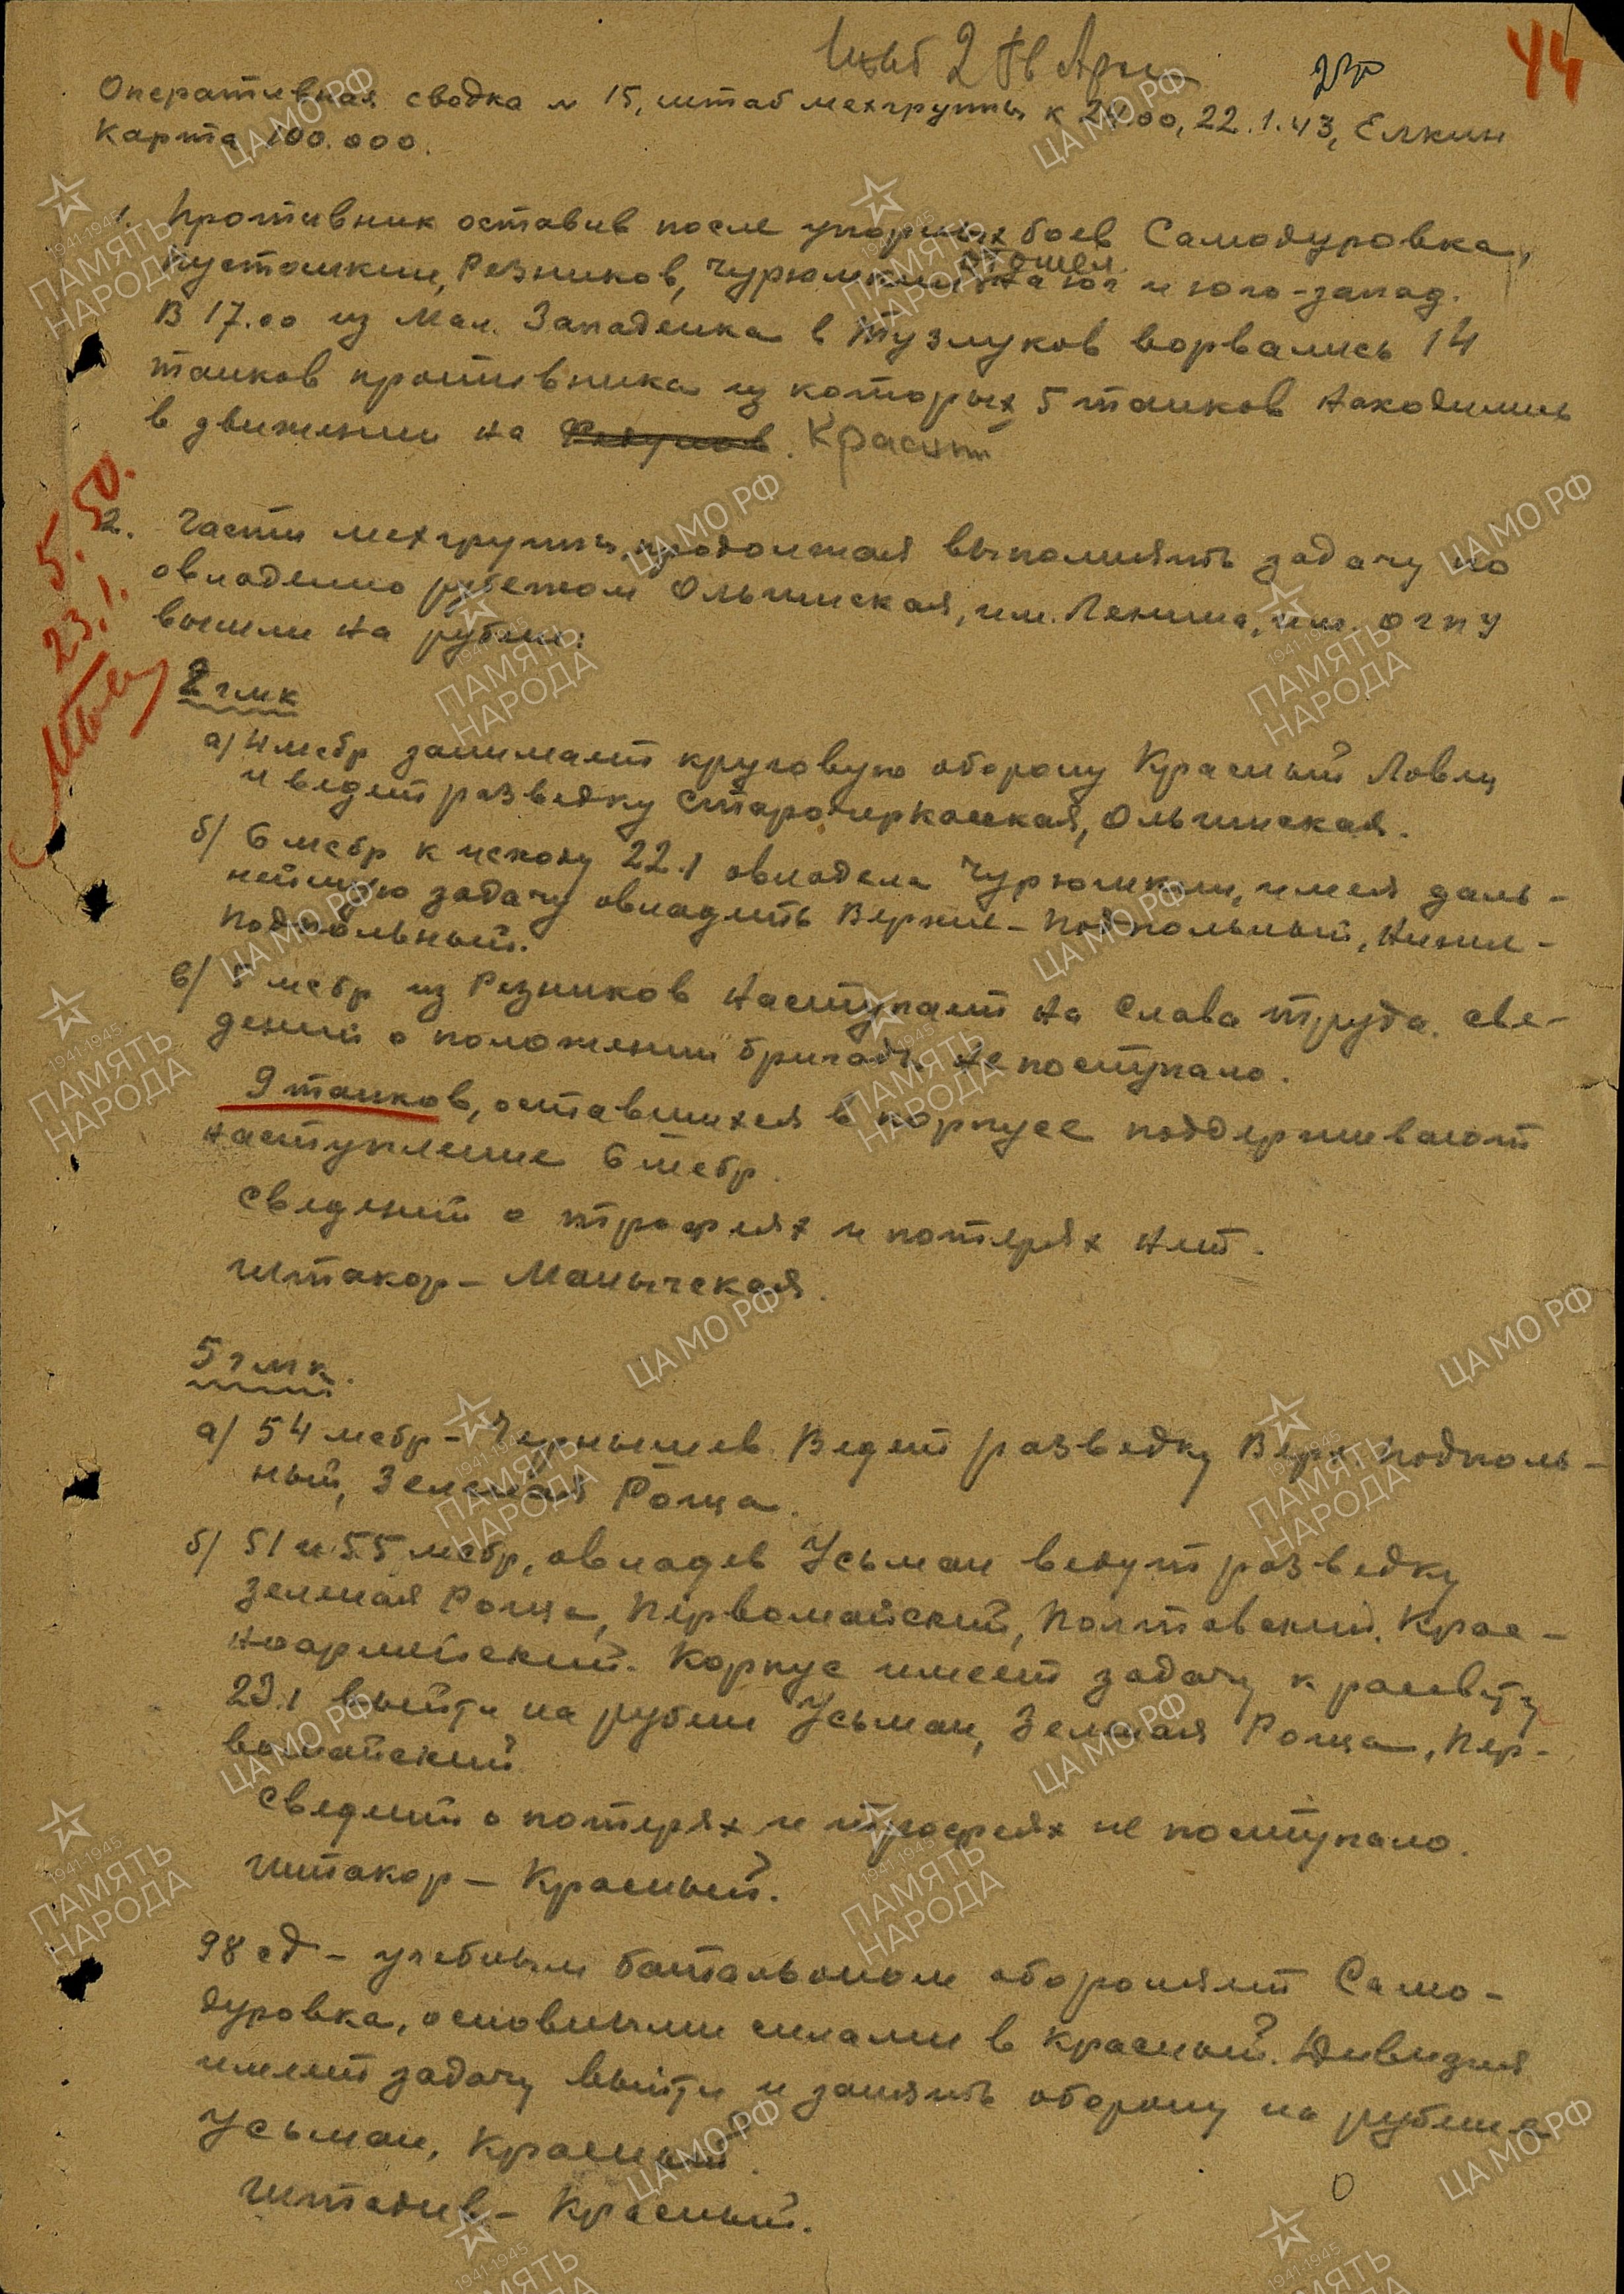 44
Штаб 2 Гв Арм
Оперативная сводка № 15, штаб мехгруппы к 24.00, 22.1.43, Елкин
Карта 100.000.
1. Противник оставив после упорных боев Самодуровка,
Пустошкин, Резников, Чурюмкин отошел на юг и юго-запад.
В 17.00 из Мал. Западенка в Тузлуков ворвались 14
танков противника из которых 5 танков находились
в движении на Красный
5.50.
23.1.
2. Части мехгруппы, продолжая выполнять задачу по
овладению рубежом Ольгинская, им. Ленина, им. ОГПУ
вышли на рубеж:
2 гмк
а/ 4 мебр занимает круговую оборону Красный Ловец
и ведет разведку Старочеркасская, Ольгинская.
б/ 6 мебр к исходу 22.1 овладела Чурюмкин, имея даль-
нейшую задачу овладеть Верхне-Подпольный, Нижне-
Подпольный.
в/ 5 мебр из Резников наступает на Слава труда. Све-
дений о положении бригады не поступало.
9 танков, оставшихся в корпусе поддерживают
наступление 6 мебр.
Сведений о трофеях и потерях нет.
Штакор – Манычская.
5 гмк.
а/ 54 мебр – Чернышев. Ведет разведку Верх. Подполь-
ный, Зеленая Роща.
б/ 51 и 55 мебр, овладев Усьман ведут разведку
Зеленая Роща, Первомайский, Полтавский, Крас-
ноармейский. Корпус имеет задачу к рассвету
23.1 выйти на рубеж Усьман, Зеленая Роща, Пер-
вомайский
Сведений о потерях и трофеях не поступало.
Штакор – Красный.
98 сд – учебным батальоном обороняет Само-
дуровка, основными силами в Красный. Дивизия
имеет задачу выйти и занять оборону на рубеже
Усьман, Красный.
Штадив – Красный.
ЦА МО РФ
1941-1945
ПАМЯТЬ
НАРОДА